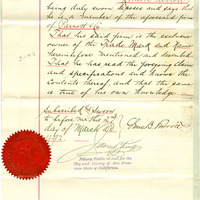 being duly sworn deposes and says that
he is a member of the aforesaid firm
of Parrott & Co
That his said firm is the exclusive
owner of the Trade Mark and Name
hereinbefore mentioned and described
That he has read the foregoing claim
and specifications and knows the
contents thereof and that the same
is true of his own knowledge
Subscribed & Sworn
to before me this 2nd
day of March A.D.
Notary Public in and for the
City and County of San Francisco
State of California.